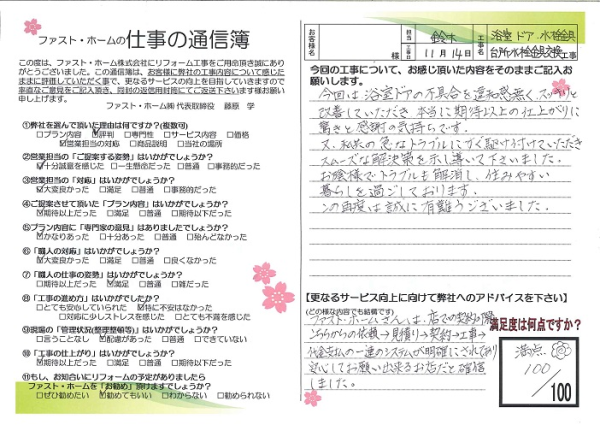 ファスト・ホームの仕事の通信簿
この度は、ファスト・ホーム株式会社にリフォーム工事をご用命頂き誠にあり
がとうございました。この通信簿は、お客様に弊社の工事内容について感じた
ままに評価していただく事で、更なるサービスの向上を目指していきますので
率直なご意見をご記入頂き、同封の返信用封筒にてご返送下さいます様お願い
申し上げます。
ファスト・ホーム㈱ 代表取締役 藤原 学
①弊社を選んで頂いた理由は何ですか?(複数可)
□プラン内容 ☑評判 □専門性 □サービス内容 □価格
☑営業担当の対応 □商品説明 □当社の場所
②営業担当の「ご提案する姿勢」はいかがでしょうか?
☑十分誠意を感じた □一生懸命だった □普通 □事務的だった
③営業担当の「対応」はいかがでしょうか?
☑大変良かった □満足 □普通 □事務的だった
④ご提案させて頂いた「プラン内容」はいかがでしょうか?
☑期待以上だった □満足 □普通 □期待以下だった
⑤プラン内容に「専門家の意見」はありましたでしょうか?
☑かなりあった □十分あった □普通 □殆んどなかった
⑥「職人の対応」はいかがでしょうか?
☑大変良かった □満足 □普通 □良くなかった
⑦「職人の仕事の姿勢」はいかがでしょうか?
☑期待以上だった □満足 □普通 □雑だった
⑧「工事の進め方」はいかがでしたか?
□とても安心していられた ☑特に不安はなかった
□対応に少しストレスを感じた □とても不満を感じた
⑨現場の「管理状況(整理整頓等)」はいかがでしょうか?
□言うことなし ☑配慮があった □普通 □できていない
⑩「工事の仕上がり」はいかがでしょうか?
☑期待以上だった □満足 □普通 □期待以下だった
⑪もし、お知合いにリフォームの予定がありましたら
ファスト・ホームを「お勧め」頂けますでしょうか?
□ぜひ勧めたい ☑勧めてもいい □わからない □勧められない
お客様名 様
担当 鈴木
11月14日
工事名 浴室ドア・水栓金具
台所水栓金具交換工事
今回の工事について、お感じ頂いた内容をそのままご記入お
願いします。
今回は浴室ドアの不具合を違和感無く、スッキリと
改善していただき 本当に期待以上の仕上がりに
驚きと感謝の気持ちです。
又、私共の急なトラブルにすぐ駆け付けていただき
スムーズな解決策を示し導いて下さいました。
お陰様でトラブルも解消し、住みやすい
暮らしを過ごしております。
この再度は誠に有難うございました。
【更なるサービス向上に向けて弊社へのアドバイスを下さい】
(どの様な内容でも結構です)
ファスト・ホームさんは、店での契約の際
こちらからの依頼→見積り→契約→工事→
代金支払の一連のシステムが明確にされており
安心してお願い出来るお店だと確信
しました。
満足度は何点ですか?
満点
100
/100